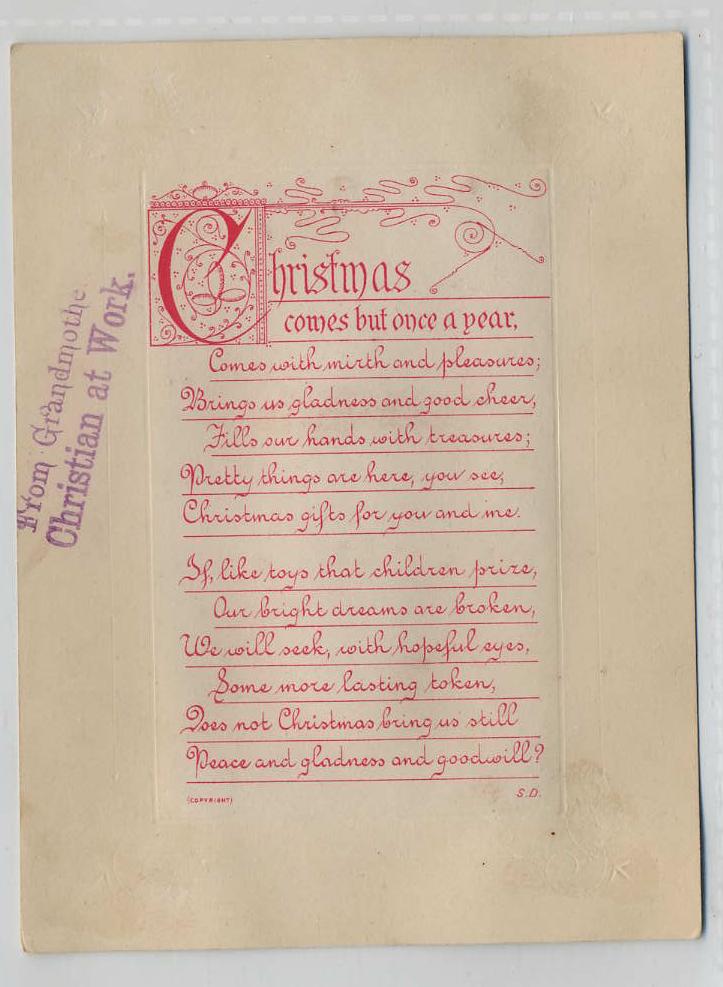 Christmas
comes but once a year,
Comes with mirth and pleasures;
Brings us gladness and good cheer,
Fills our hands with treasures;
Pretty things are here, you see,
Christmas gifts for you and me.
If, like toys that children prize,
Our bright dreams are broken,
We will seek, with hopeful eyes,
Some more lasting token,
Does not Christmas bring us still
Peace and gladness and goodwill?
(COPYRIGHT)
S.D.
From Grandmothe
Christian at Work.